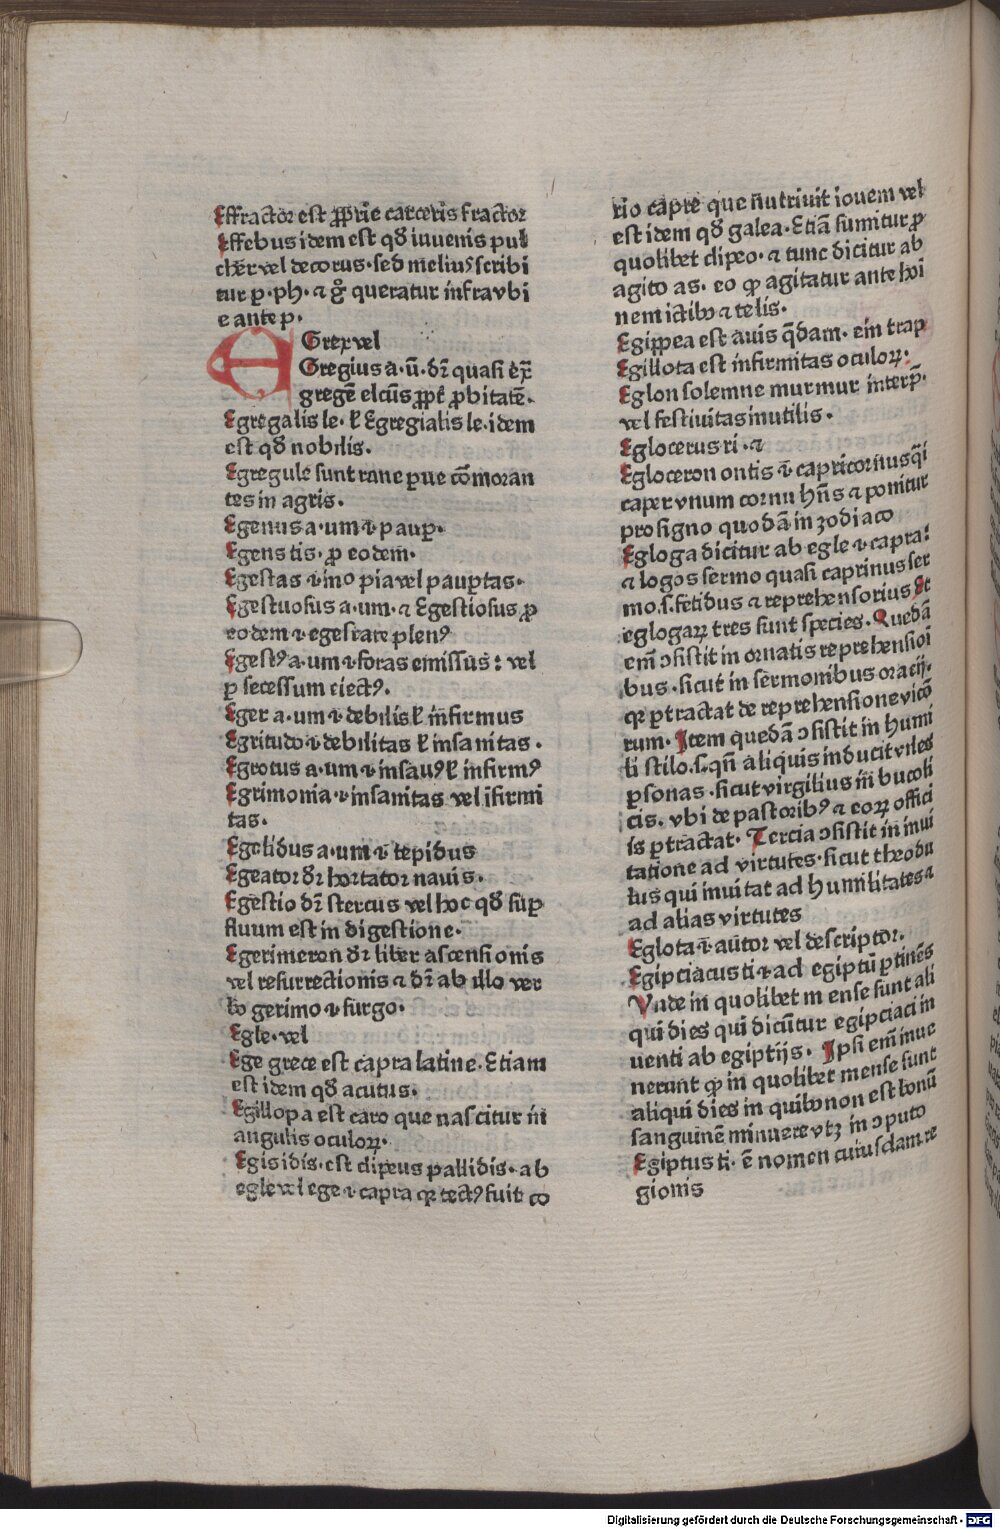 Effractor est ꝓprie carceris fractor
Effebus idem est qd̃ iuuenis pul
cher vel decorus. sed meliuꝰ scribi
tur p. ph. ⁊ g̊ queratur infra vbi
e ante p.
EGrex vel
Gregius a. ũ. dr̃ quasi ex̄
gregē elcūs ꝓpt̄ ꝓbitatē.
Egregalis le. ł Egregialis le. idem
est qd̃ nobilis.
Egregule sunt rane ꝑue cōmoran
tes in agris.
Egenus a. um .i. pauꝑ.
Egens tis. ꝓ eodem.
Egestas .i. ino pia vel pauꝑtas.
Egestuosus a. um. ⁊ Egestiosus ꝓ
eodem .i. egestate plenꝰ
Egestꝰ a. um .i. foras emissus: vel
ꝑ secessum eiectꝰ.
Eger a. um .i. debilis ł infirmus
Egritudo .i. debilitas ł insanitas.
Egrotus a. um .i. insanꝰ ł infirmꝰ
Egrimonia .i. insanitas vel ifirmi
tas.
Egelidus a. um .i. tepidus
Egeator dr̃ hortator nauis.
Egestio dr̃ stercus vel hoc qd̃ suꝑ
fluum est in digestione.
Egerimeron dr̃ liber ascensionis
vel resurrectionis ⁊ dr̃ ab illo ver
bo gerimo .i. surgo.
Egle. vel
Ege grece est capra latine. Etiam
est idem qd̃ acutus.
Egillopa est caro que nascitur in
angulis oculoꝝ.
Egis idis. est clipeus pallidis. ab
egle vel ege .i. capra qꝛ tectꝰ fuit co
rio capre que nutriuit iouem vel
est idem qd̃ galea. Etiā sumitur ꝓ
quolibet clipeo. ⁊ tunc dicitur ab
agito as. eo ꝙ agitatur ante hoi
nem ictibꝰ ⁊ telis.
Egippea est auis q̄dam. ein trap
Egillota est infirmitas oculoꝝ:
Eglon solemne murmur interp̄.
vel festiuitas inutilis.
Eglocerus ri. ⁊
Egloceron ontis .i. capricornus q̄i
caper vnum cornu hn̄s ⁊ ponitur
pro signo quodā in zodiaco
Egloga dicitur ab egle .i. capra:
⁊ logos sermo quasi caprinus ser
mo. s. fetidus ⁊ reprehensorius Et
eglogaꝝ tres sunt species. Quedā
em̄ ↄsistit in ornatis reprehensioi
bus. sicut in sermonibus oracij.
qꝛ ꝑtractat de reprehensione vico
rum. Item quedā ↄsistit in humi
li stilo. s. qn̄ aliquis inducit viles
ꝑsonas. sicut virgilius in bucoli
cis. vbi de pastoribꝰ ⁊ eoꝝ offici
is ꝑtractat. Tercia ↄsistit in inui
tatione ad virtutes. sicut theodu
lus qui inuitat ad humilitates ⁊
ad alias virtutes
Eglota .i. autor vel descriptor.
Egipciacus ti .i. ad egiptū ꝑtinēs
Vnde in quolibet mense sunt ali
qui dies qui dicūtur egipciaci in
uenti ab egiptijs. Ipsi em̄ inue
nerunt ꝙ in quolibet mense sunt
aliqui dies in quibꝰ non est bonū
sanguinē minuere vtꝫ in ↄputo
Egiptus ti. ē nomen cuiusdam re
gionis
Digitalisierung gefördert durch die Deutsche Forschungsgemeinschaft - DFG